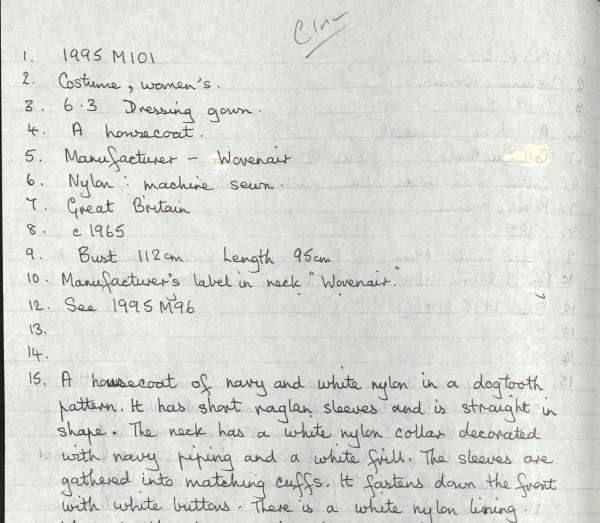 1. 1995 M101
2. Costume, women's.
3. 6.3 Dressing gown.
4. A housecoat.
5. Manufacturer - Wovenair
6. Nylon: machine sewn.
7. Great Britain
8. c 1965
9. Bust 112cm Length 95cm
10. Manufacturer's label in neck "Wovenair."
12. See 1995 M96
13.
14.
15. A housecoat of navy and white nylon in a dogtooth
pattern. It has short raglan sleeves and is straight in
shape. The neck has a white nylon collar decorated
with navy piping and a white frill. The sleeves are
gathered into matching cuffs. It fastens down the front
with white buttons. There is a white nylon lining.